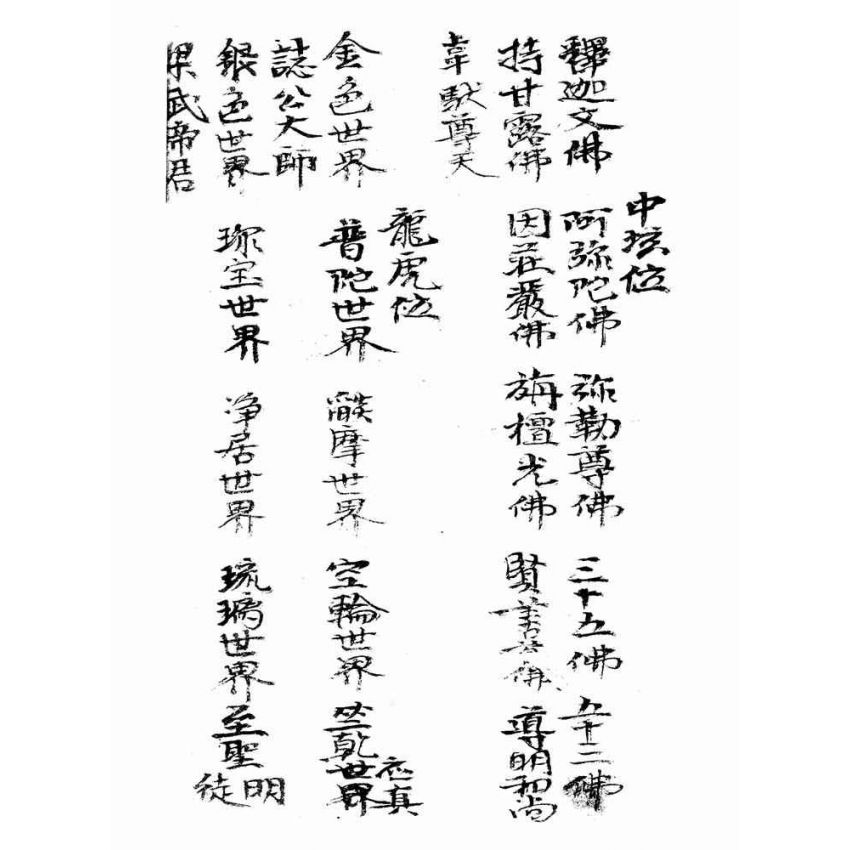 中玹位
釋迦文佛 阿弥陀佛 弥勒尊佛 三十五佛 五十三佛
持甘露佛 因莊嚴佛 旃檀光佛 賢善首佛 導明和尚
韋馱尊天
龍虎位
金色世界 普陀世界 燄摩世界 空輪世界 竺乾世界 应真
誌公大師
銀色世界 珎宝世界 净居世界 琉璃世界 至聖明徒
梁武帝君